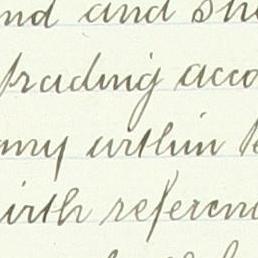 and and sh
trading acco
any within
with referenc